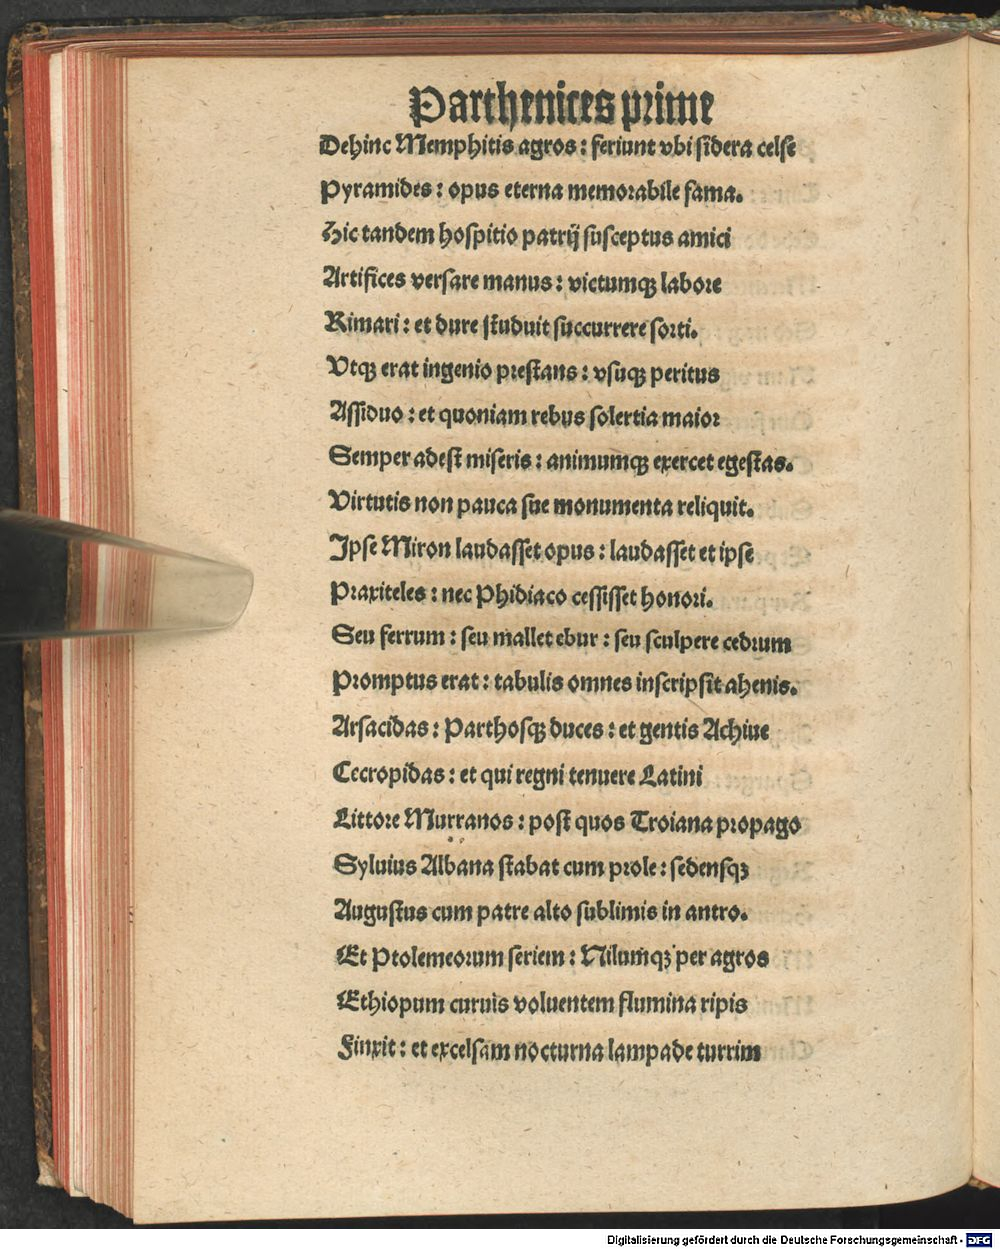 Parthenices prime
Dehinc Memphitis agros: feriunt vbi sidera celse
Pyramides: opus eterna memorabile fama.
Hic tandem hospitio patrij susceptus amici
Artifices versare manus: victumqꝫ labore
Rimari: et dure studuit succurrere sorti.
Vtqꝫ erat ingenio prestans: vsuqꝫ peritus
Assiduo: et quoniam rebus solertia maior
Semper adest miseris: animumqꝫ exercet egestas.
Virtutis non pauca sue monumenta reliquit.
Ipse Miron laudasset opus: laudasset et ipse
Praxiteles: nec Phidiaco cessisset honori.
Seu ferrum: seu mallet ebur: seu sculpere cedrum
Promptus erat: tabulis omnes inscripsit ahenis.
Arsacidas: Parthosqꝫ duces: et gentis Achiue
Cecropidas: et qui regni tenuere Latini
Littore Murranos: post quos Troiana propago
Syluius Albana stabat cum prole: sedensqꝫ
Augustus cum patre alto sublimis in antro.
Et Ptolemeorum seriem: Nilumqꝫ per agros
Ethiopum curuis voluentem flumina ripis
Finxit: et excelsam nocturna lampade turrim
Digitalisierung gefördert durch die Deutsche Forschungsgemeinschaft - DFG